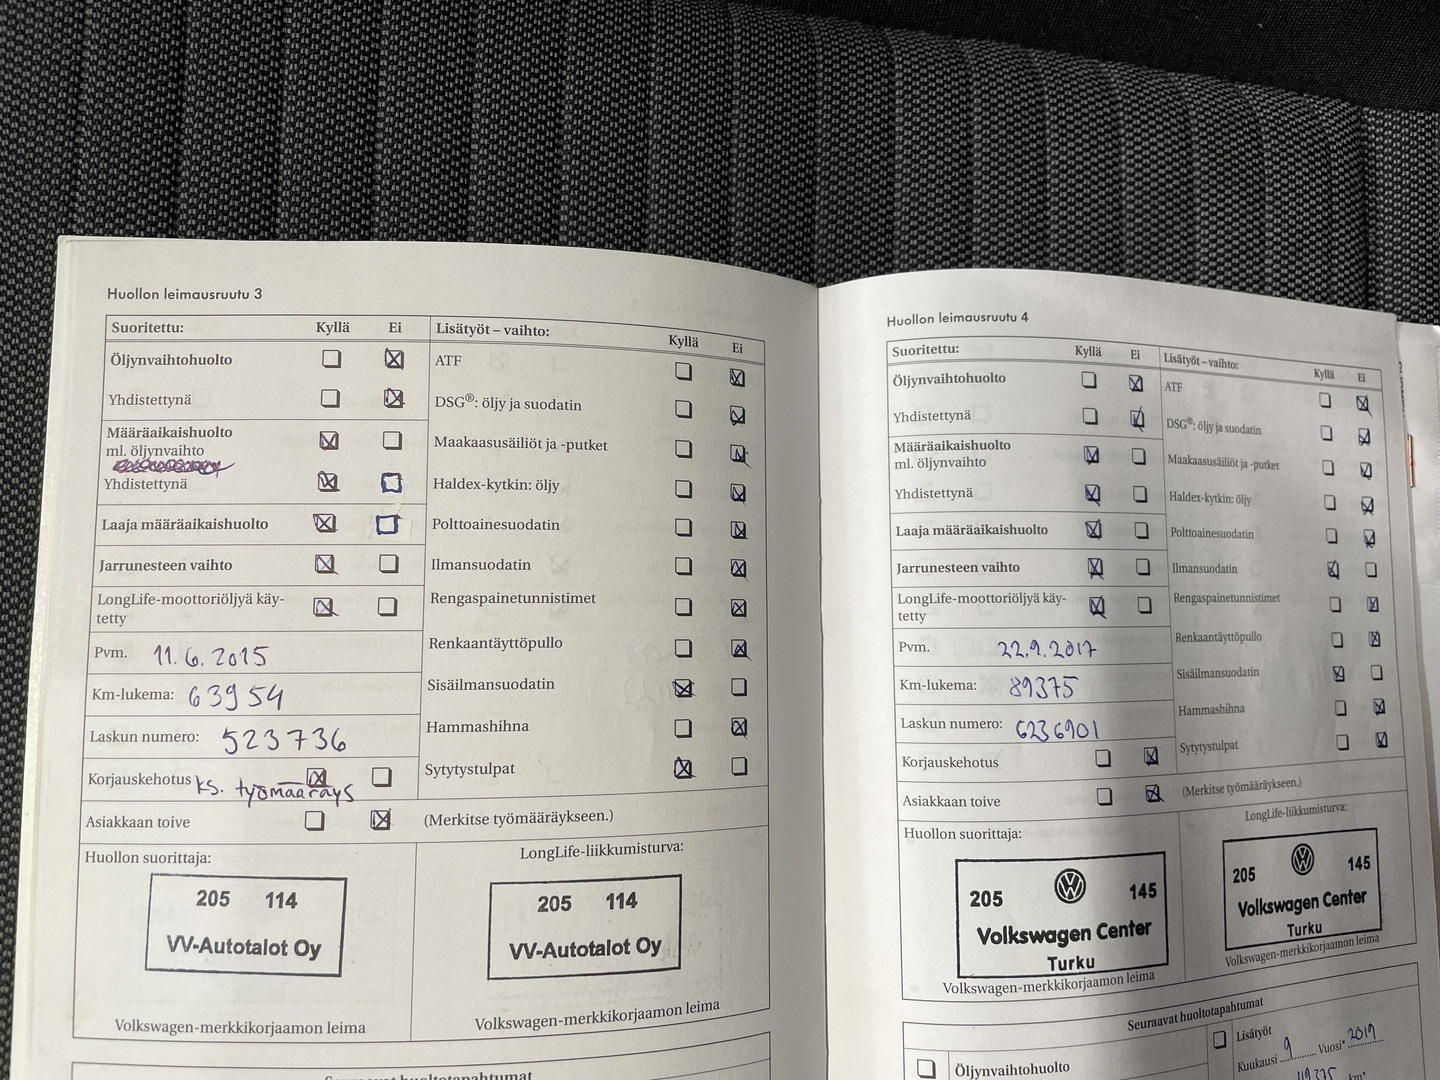 Huollon leimausruutu 3
Suoritettu: Kyllä Ei
Öljynvaihtohuolto
Yhdistettynä
Määräaikaishuolto
ml. öljynvaihto
Yhdistettynä
Laaja määräaikaishuolto
Jarrunesteen vaihto
LongLife-moottoriöljyä käy-
tetty
Pvm. 11.6.2015
Km-lukema: 63954
Laskun numero: 523736
Korjauskehotus ks. työmääräys
Asiakkaan toive
Lisätyöt – vaihto: Kyllä Ei
ATF
DSG®: öljy ja suodatin
Maakaasusäiliöt ja -putket
Haldex-kytkin: öljy
Polttoainesuodatin
Ilmansuodatin
Rengaspainetunnistimet
Renkaantäyttöpullo
Sisäilmansuodatin
Hammashihna
Sytytystulpat
(Merkitse työmääräykseen.)
Huollon suorittaja:
205 114
VV-Autotalot Oy
Volkswagen-merkkikorjaamon leima
LongLife-liikkumisturva:
205 114
VV-Autotalot Oy
Volkswagen-merkkikorjaamon leima
Seuraavat huoltotapahtumat
Huollon leimausruutu 4
Suoritettu: Kyllä Ei
Öljynvaihtohuolto
Yhdistettynä
Määräaikaishuolto
ml. öljynvaihto
Yhdistettynä
Laaja määräaikaishuolto
Jarrunesteen vaihto
LongLife-moottoriöljyä käy-
tetty
Pvm. 22.9.2017
Km-lukema: 89375
Laskun numero: 6236901
Korjauskehotus
Asiakkaan toive
Lisätyöt – vaihto: Kyllä Ei
ATF
DSG®: öljy ja suodatin
Maakaasusäiliöt ja -putket
Haldex-kytkin: öljy
Polttoainesuodatin
Ilmansuodatin
Rengaspainetunnistimet
Renkaantäyttöpullo
Sisäilmansuodatin
Hammashihna
Sytytystulpat
(Merkitse työmääräykseen.)
Huollon suorittaja:
205 145
Volkswagen Center
Turku
Volkswagen-merkkikorjaamon leima
LongLife-liikkumisturva:
205 145
Volkswagen Center
Turku
Volkswagen-merkkikorjaamon leima
Seuraavat huoltotapahtumat
Öljynvaihtohuolto
Lisätyöt
Kuukausi 9 Vuosi* 2019
119375 km*